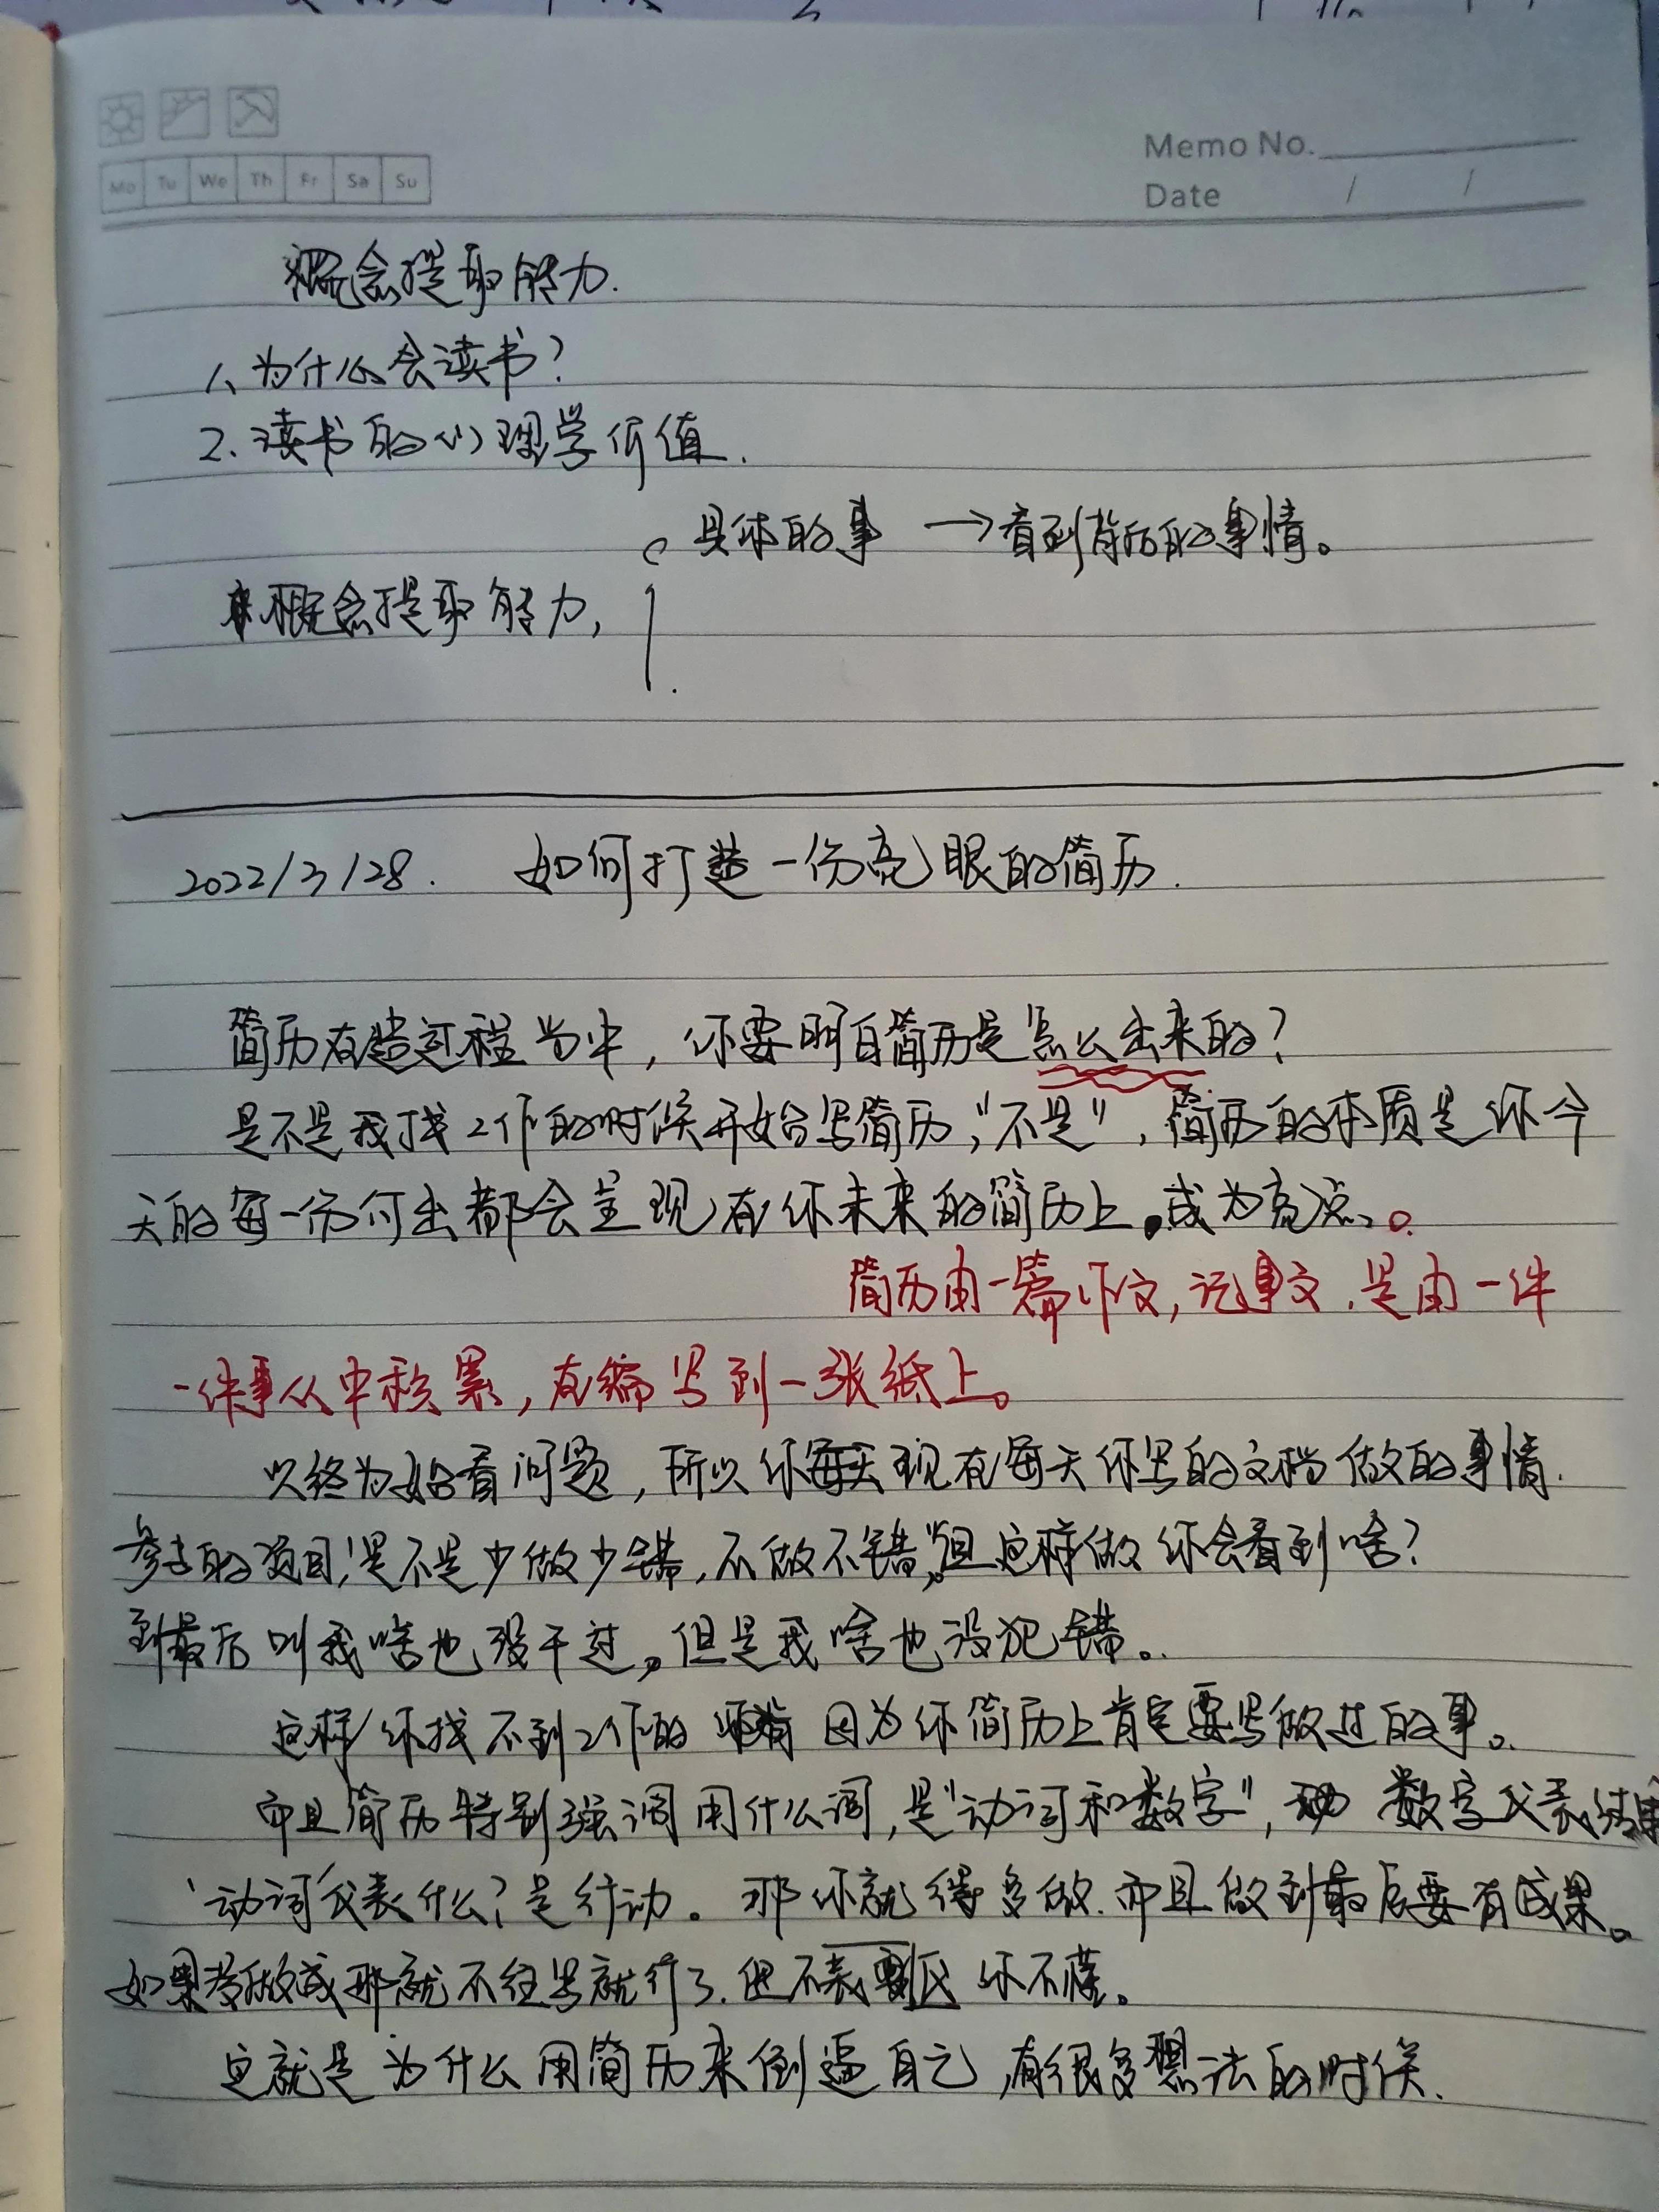 Memo No.
Mo Tu We Th Fr Sa Su
Date / /
概念提取能力.
1、为什么会读书?
2.读书的心理学价值.
具体的事 →看到背后的事情。
概念提取能力,
2022/3/28. 如何打造一份亮眼的简历.
简历在造过程当中,你要明白简历是怎么出来的?
是不是我找工作的时候开始写简历,"不是",简历的本质是你今
天的每一份付出都会呈现在你未来的简历上。成为亮点。
简历由一篇作文,记事文.是由一件
一件事从中积累,在编写到一张纸上。
以终为始看问题,所以你现在每天你写的文档做的事情.
参与的项目,是不是少做少错,不做不错,"但这样做你会看到啥?
到最后叫我啥也没干过。但是我啥也没犯错。
这样你找不到工作的 因为你简历上肯定要写做过的事。
而且简历特别强调用什么词,是"动词和数字", 数字代表结果
'动词'代表什么?是行动。那你就得多做.而且做到最后要有成果。
如果没做成那就不往写就行了.但不代 你不懂。
这就是为什么用简历来倒逼自己,有很多想法的时候.